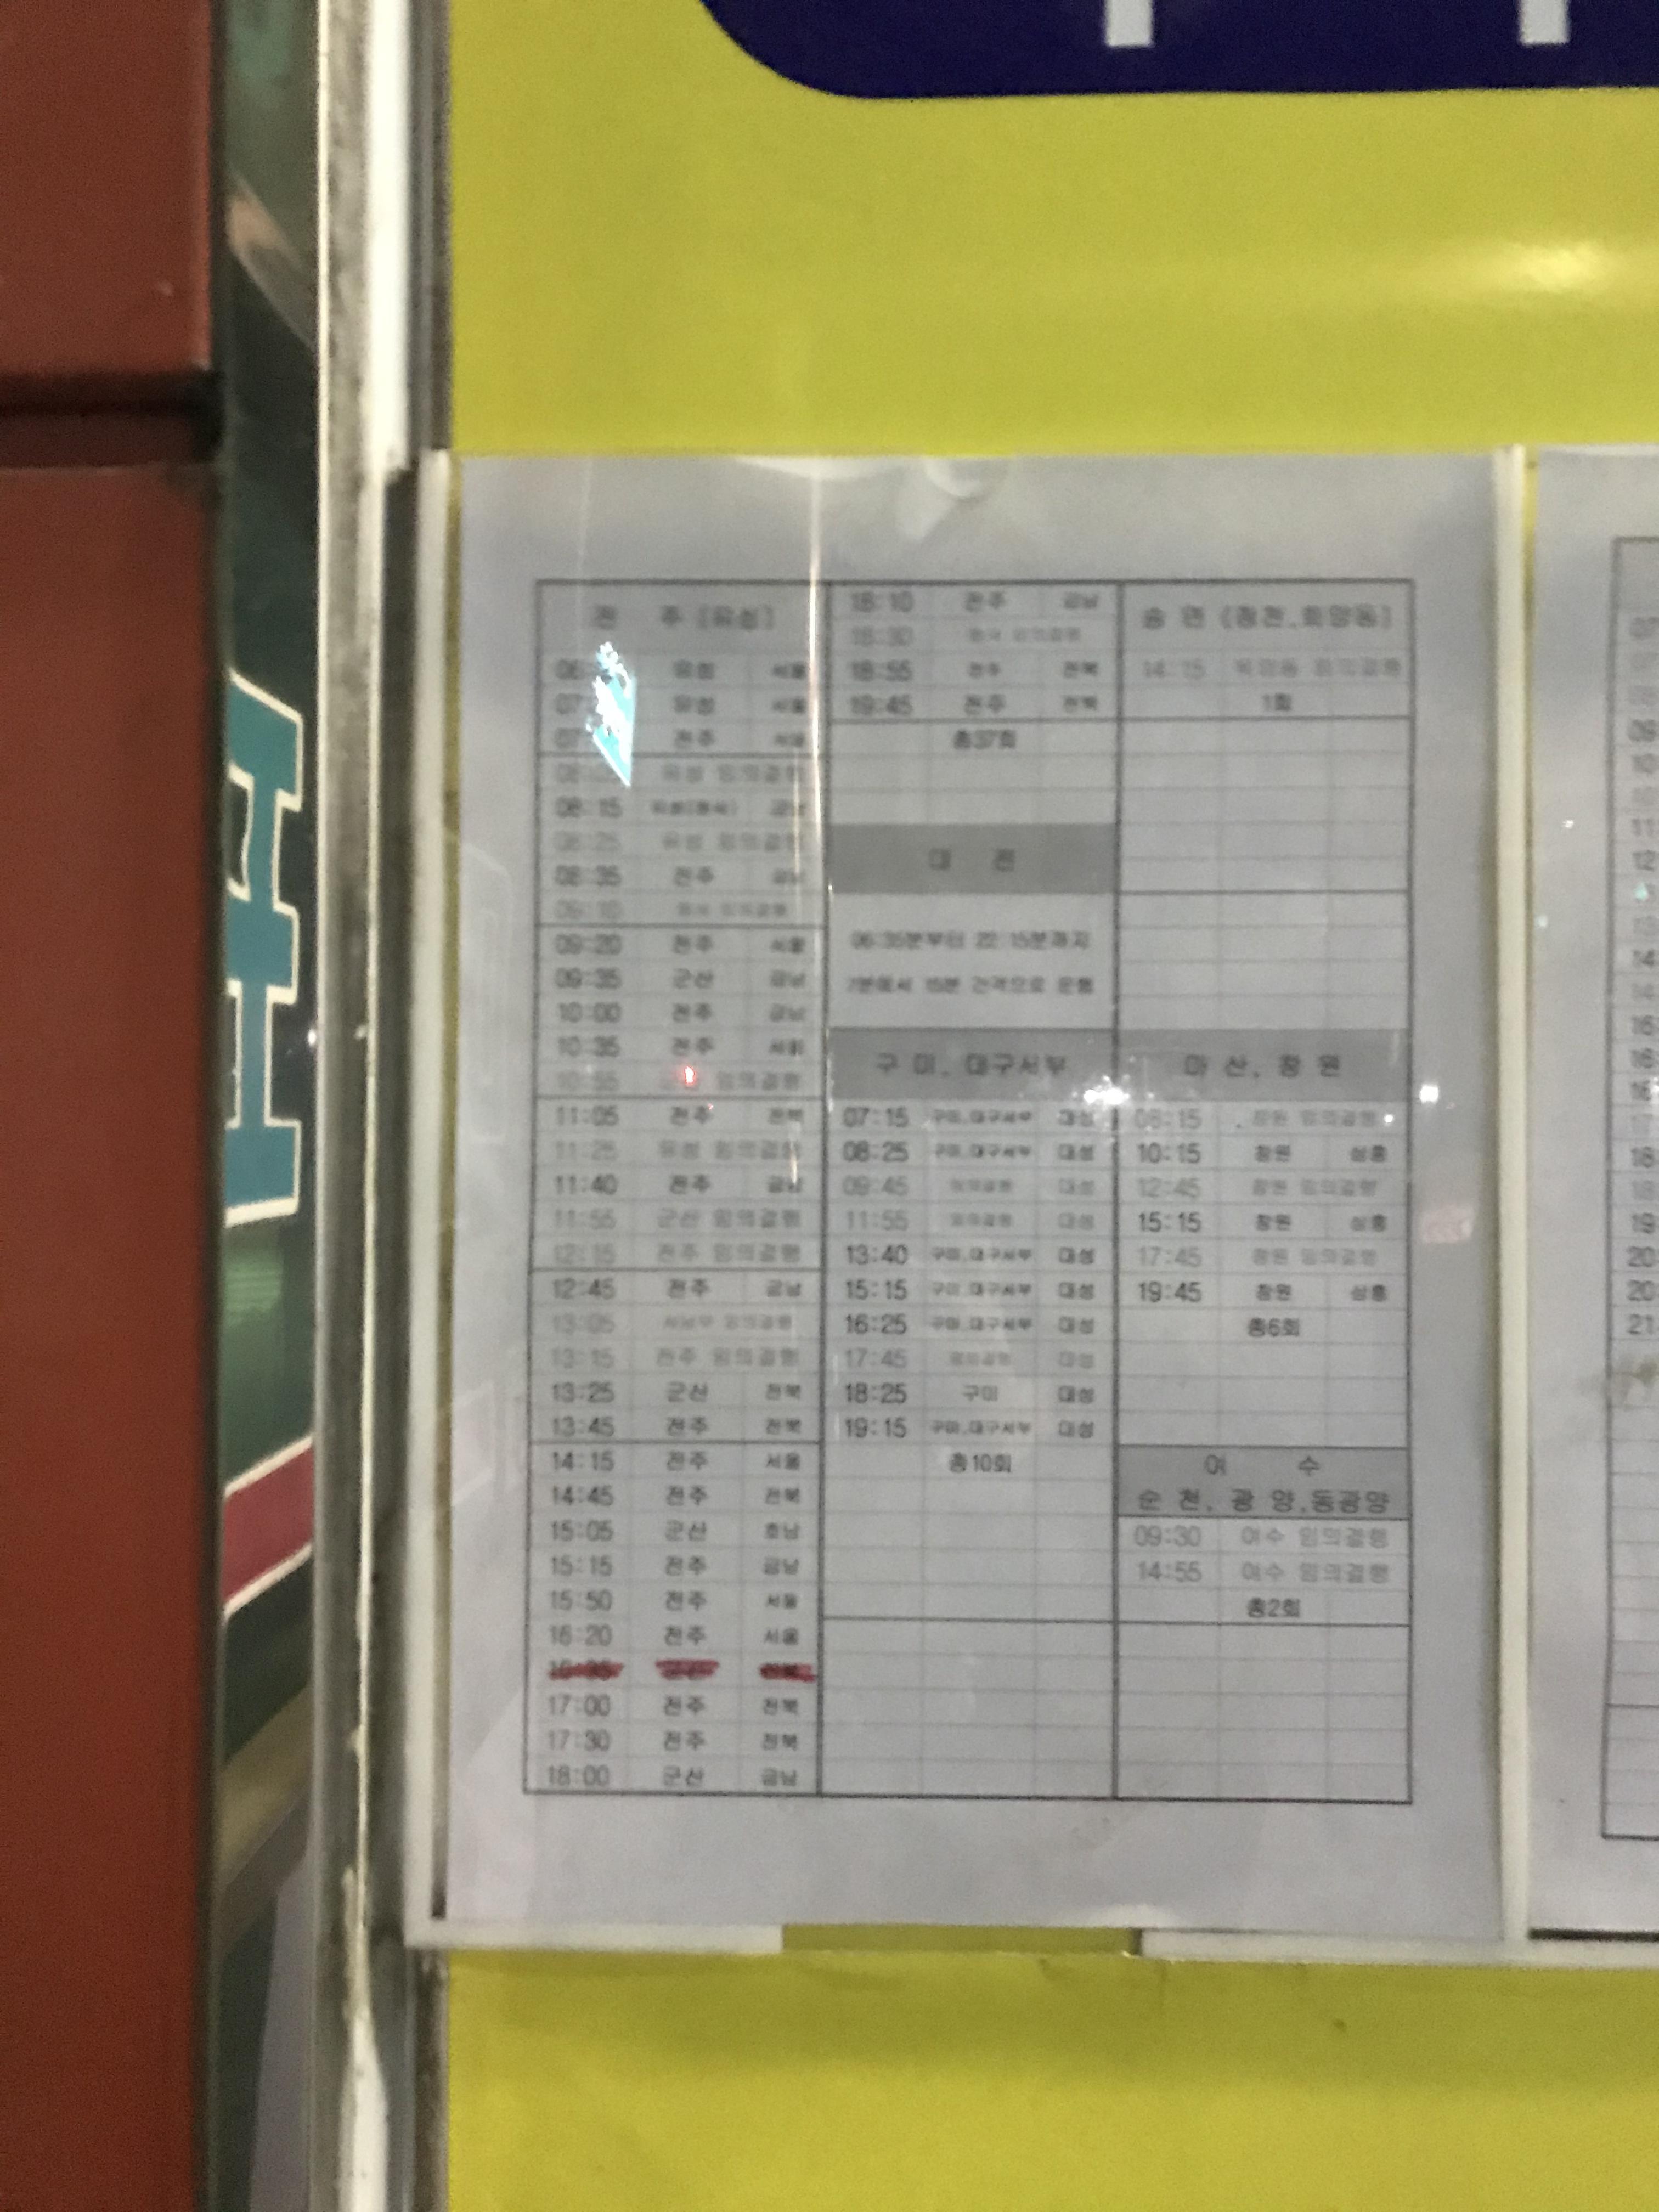 전 주 (유성)
유성 서울
유성 서울
전주 서울
유성 임의결행
08:15 금남
08:25 유성 임의결행
08:35 전주 금남
09:10 임의결행
09:20 전주 서울
09:35 군산 금남
10:00 전주 금남
10:35 전주 서울
10:55 임의결행
11:05 전주 전북
11:25 유성 임의결행
11:40 전주 금남
11:55 군산 임의결행
12:15 전주 임의결행
12:45 전주 금남
13:05 서남부 임의결행
13:15 전주 임의결행
13:25 군산 전북
13:45 전주 전북
14:15 전주 서울
14:45 전주 전북
15:05 군산 호남
15:15 전주 금남
15:50 전주 서울
16:20 전주 서울
16:35 군산 전북
17:00 전주 전북
17:30 전주 전북
18:00 군산 금남
18:10 전주 금남
18:30 임의결행
18:55 전주 전북
19:45 전주 전북
총37회
대 전
06:35분부터 22:15분까지
7분에서 15분 간격으로 운행
구 미, 대구서부
07:15 구미,대구서부 대성
08:25 구미,대구서부 대성
09:45 임의결행 대성
11:55 임의결행 대성
13:40 구미,대구서부 대성
15:15 구미,대구서부 대성
16:25 구미,대구서부 대성
17:45 임의결행 대성
18:25 구미 대성
19:15 구미,대구서부 대성
총10회
14:15 임의결행
1회
마 산, 창 원
08:15 창원 임의결행
10:15 창원 삼흥
12:45 창원 임의결행
15:15 창원 삼흥
17:45 창원 임의결행
19:45 창원 삼흥
총6회
여 수
순 천, 광 양,동광양
09:30 여수 임의결행
14:55 여수 임의결행
총2회